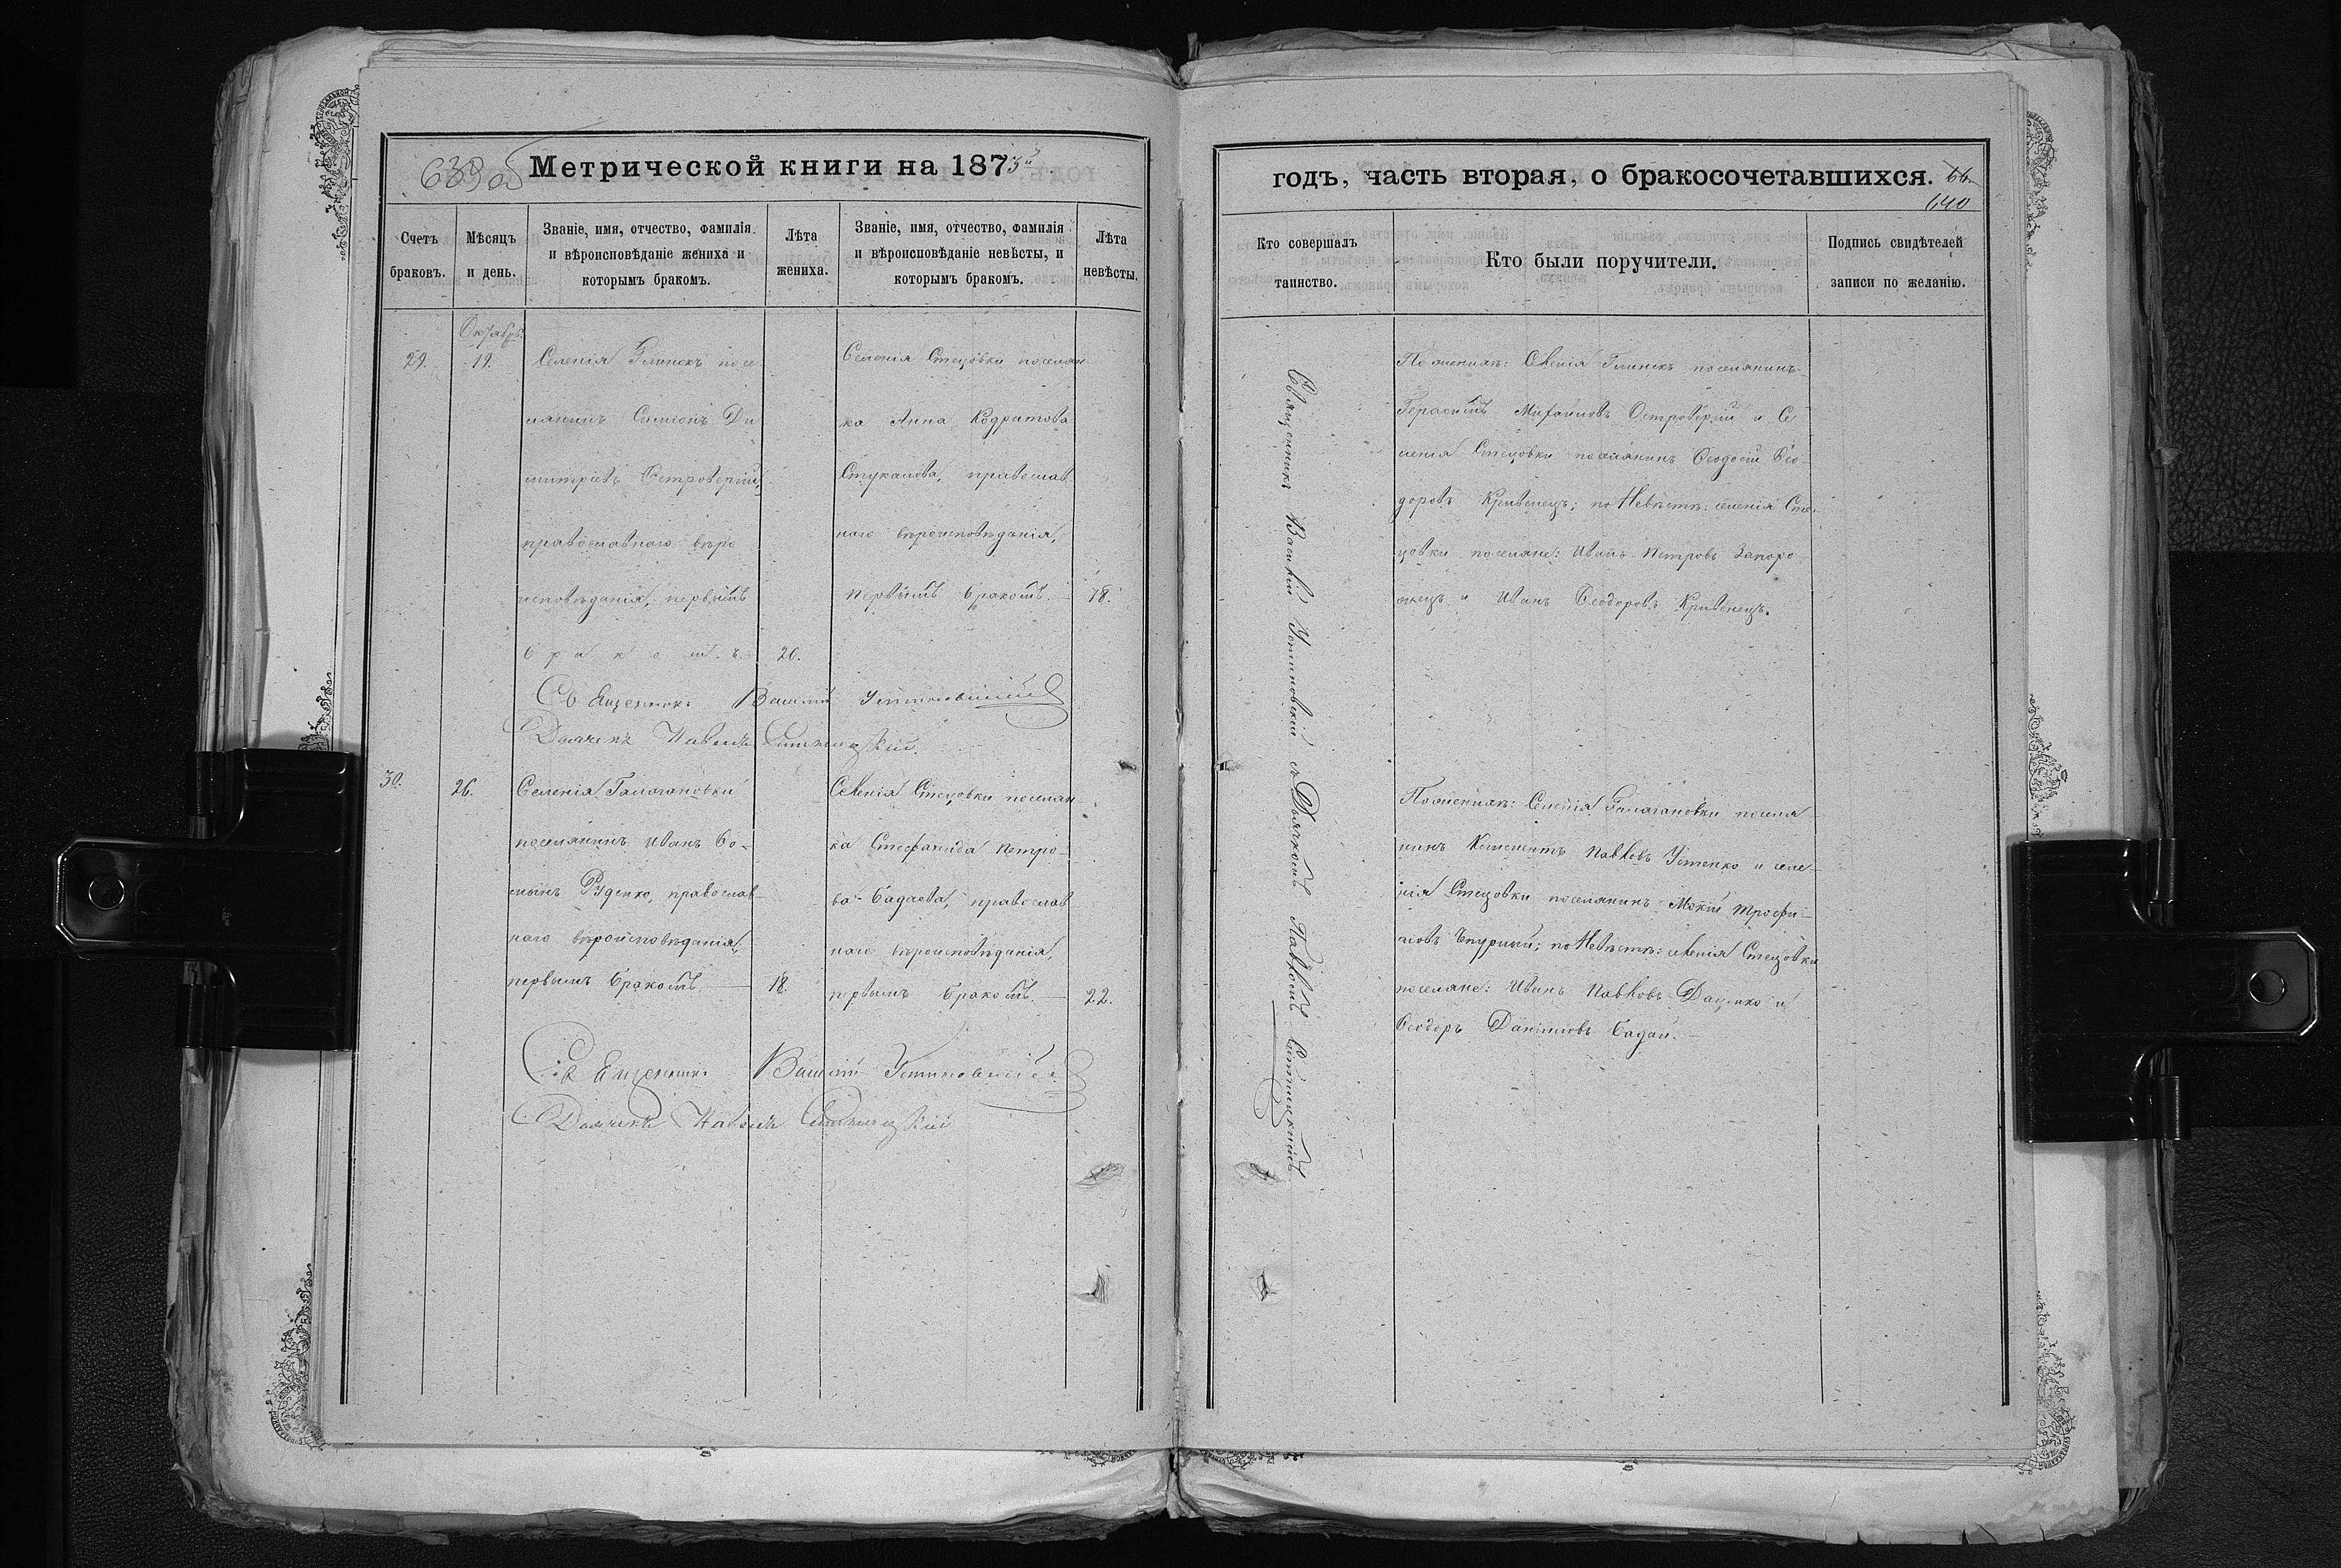 639 об
Метрической книги на 1873й
Счетъ браковъ.
Мѣсяцъ и день.
Званіе, имя, отчество, фамилія и вѣроисповѣданіе жениха и которымъ бракомъ.
Лѣта жениха.
Званіе, имя, отчество, фамилія и вѣроисповѣданіе невѣсты, и которымъ бракомъ.
Лѣта невѣсты.
29.
Октябрь.
19.
Селенія Глинскъ посе
лянинъ Симіонъ Ди
митріевъ Островерхій,
православнаго вѣро
исповѣданія, первымъ
бракомъ. 20.
Селенія Стецовки поселян
ка Анна Кодратова
Стукалова, православ
наго вѣроисповѣданія,
первымъ бракомъ. 18.
Священникъ Василій Устиновскій
Дьячекъ Павелъ
30.
26.
Селенія Галагановки
поселянинъ Иванъ Ѳо-
минъ Руденко, православ-
наго вѣроисповѣданія,
первымъ бракомъ 18.
Селенія Стецовки поселян-
ка Стефанида Петро-
ва Бадаева, православ
наго вѣроисповѣданія,
первымъ бракомъ. 22.
Священникъ Василій Устиновскій
Дьячекъ Павелъ
годъ, часть вторая, о бракосочетавшихся.
66
640
Кто совершалъ таинство.
Кто были поручители.
Подпись свидѣтелей записи по желанію.
Священникъ Василій Устиновскій съ Дьячкомъ Павломъ
По женихѣ: Селенія Глинскъ поселянинъ
Герасимъ Михайловъ Островерхій и Се
ленія Стецовки поселянинъ Ѳеодосій Ѳео-
доровъ Кривенецъ; по Невѣстѣ: селенія Сте-
цовки поселяне: Иванъ Петровъ Запоро-
жецъ и Иванъ Ѳеодоровъ Кривенецъ.
По женихѣ: Селенія Галагановки поселя
нинъ Климентъ Павловъ Устенко и селе-
нія Стецовки поселянинъ Мокій Трофи-
мовъ Чпурный; по Невѣстѣ: селенія Стецовки
поселяне: Иванъ Павловъ Даценко и
Ѳеодоръ Даниловъ Бадай.